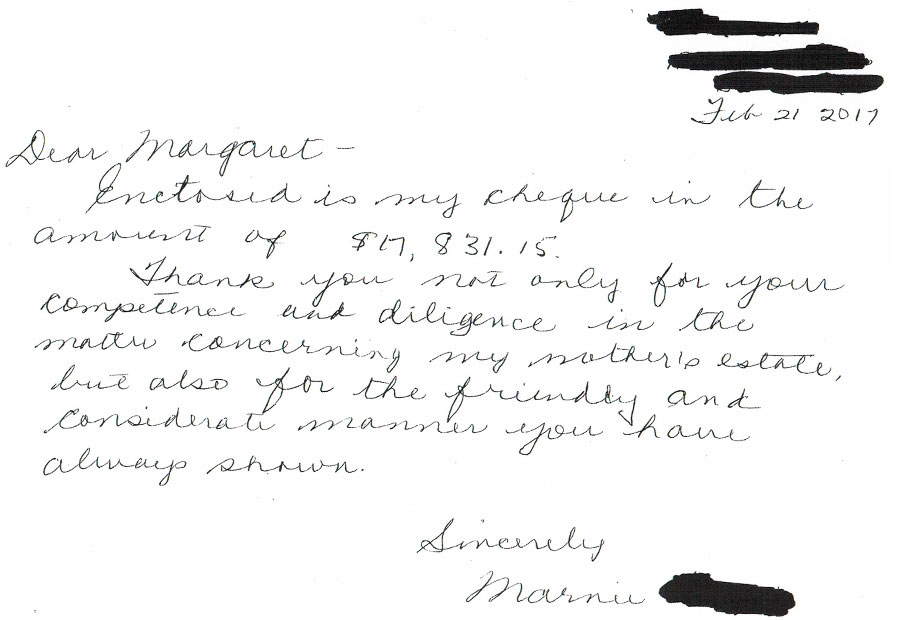 Feb 21 2017
Dear Margaret -
Enclosed is my cheque in the
amount of $17,831.15.
Thank you not only for your
competence and diligence in the
matter concerning my mother's estate,
but also for the friendly and
considerate manner you have
always shown.
Sincerely
Marnie